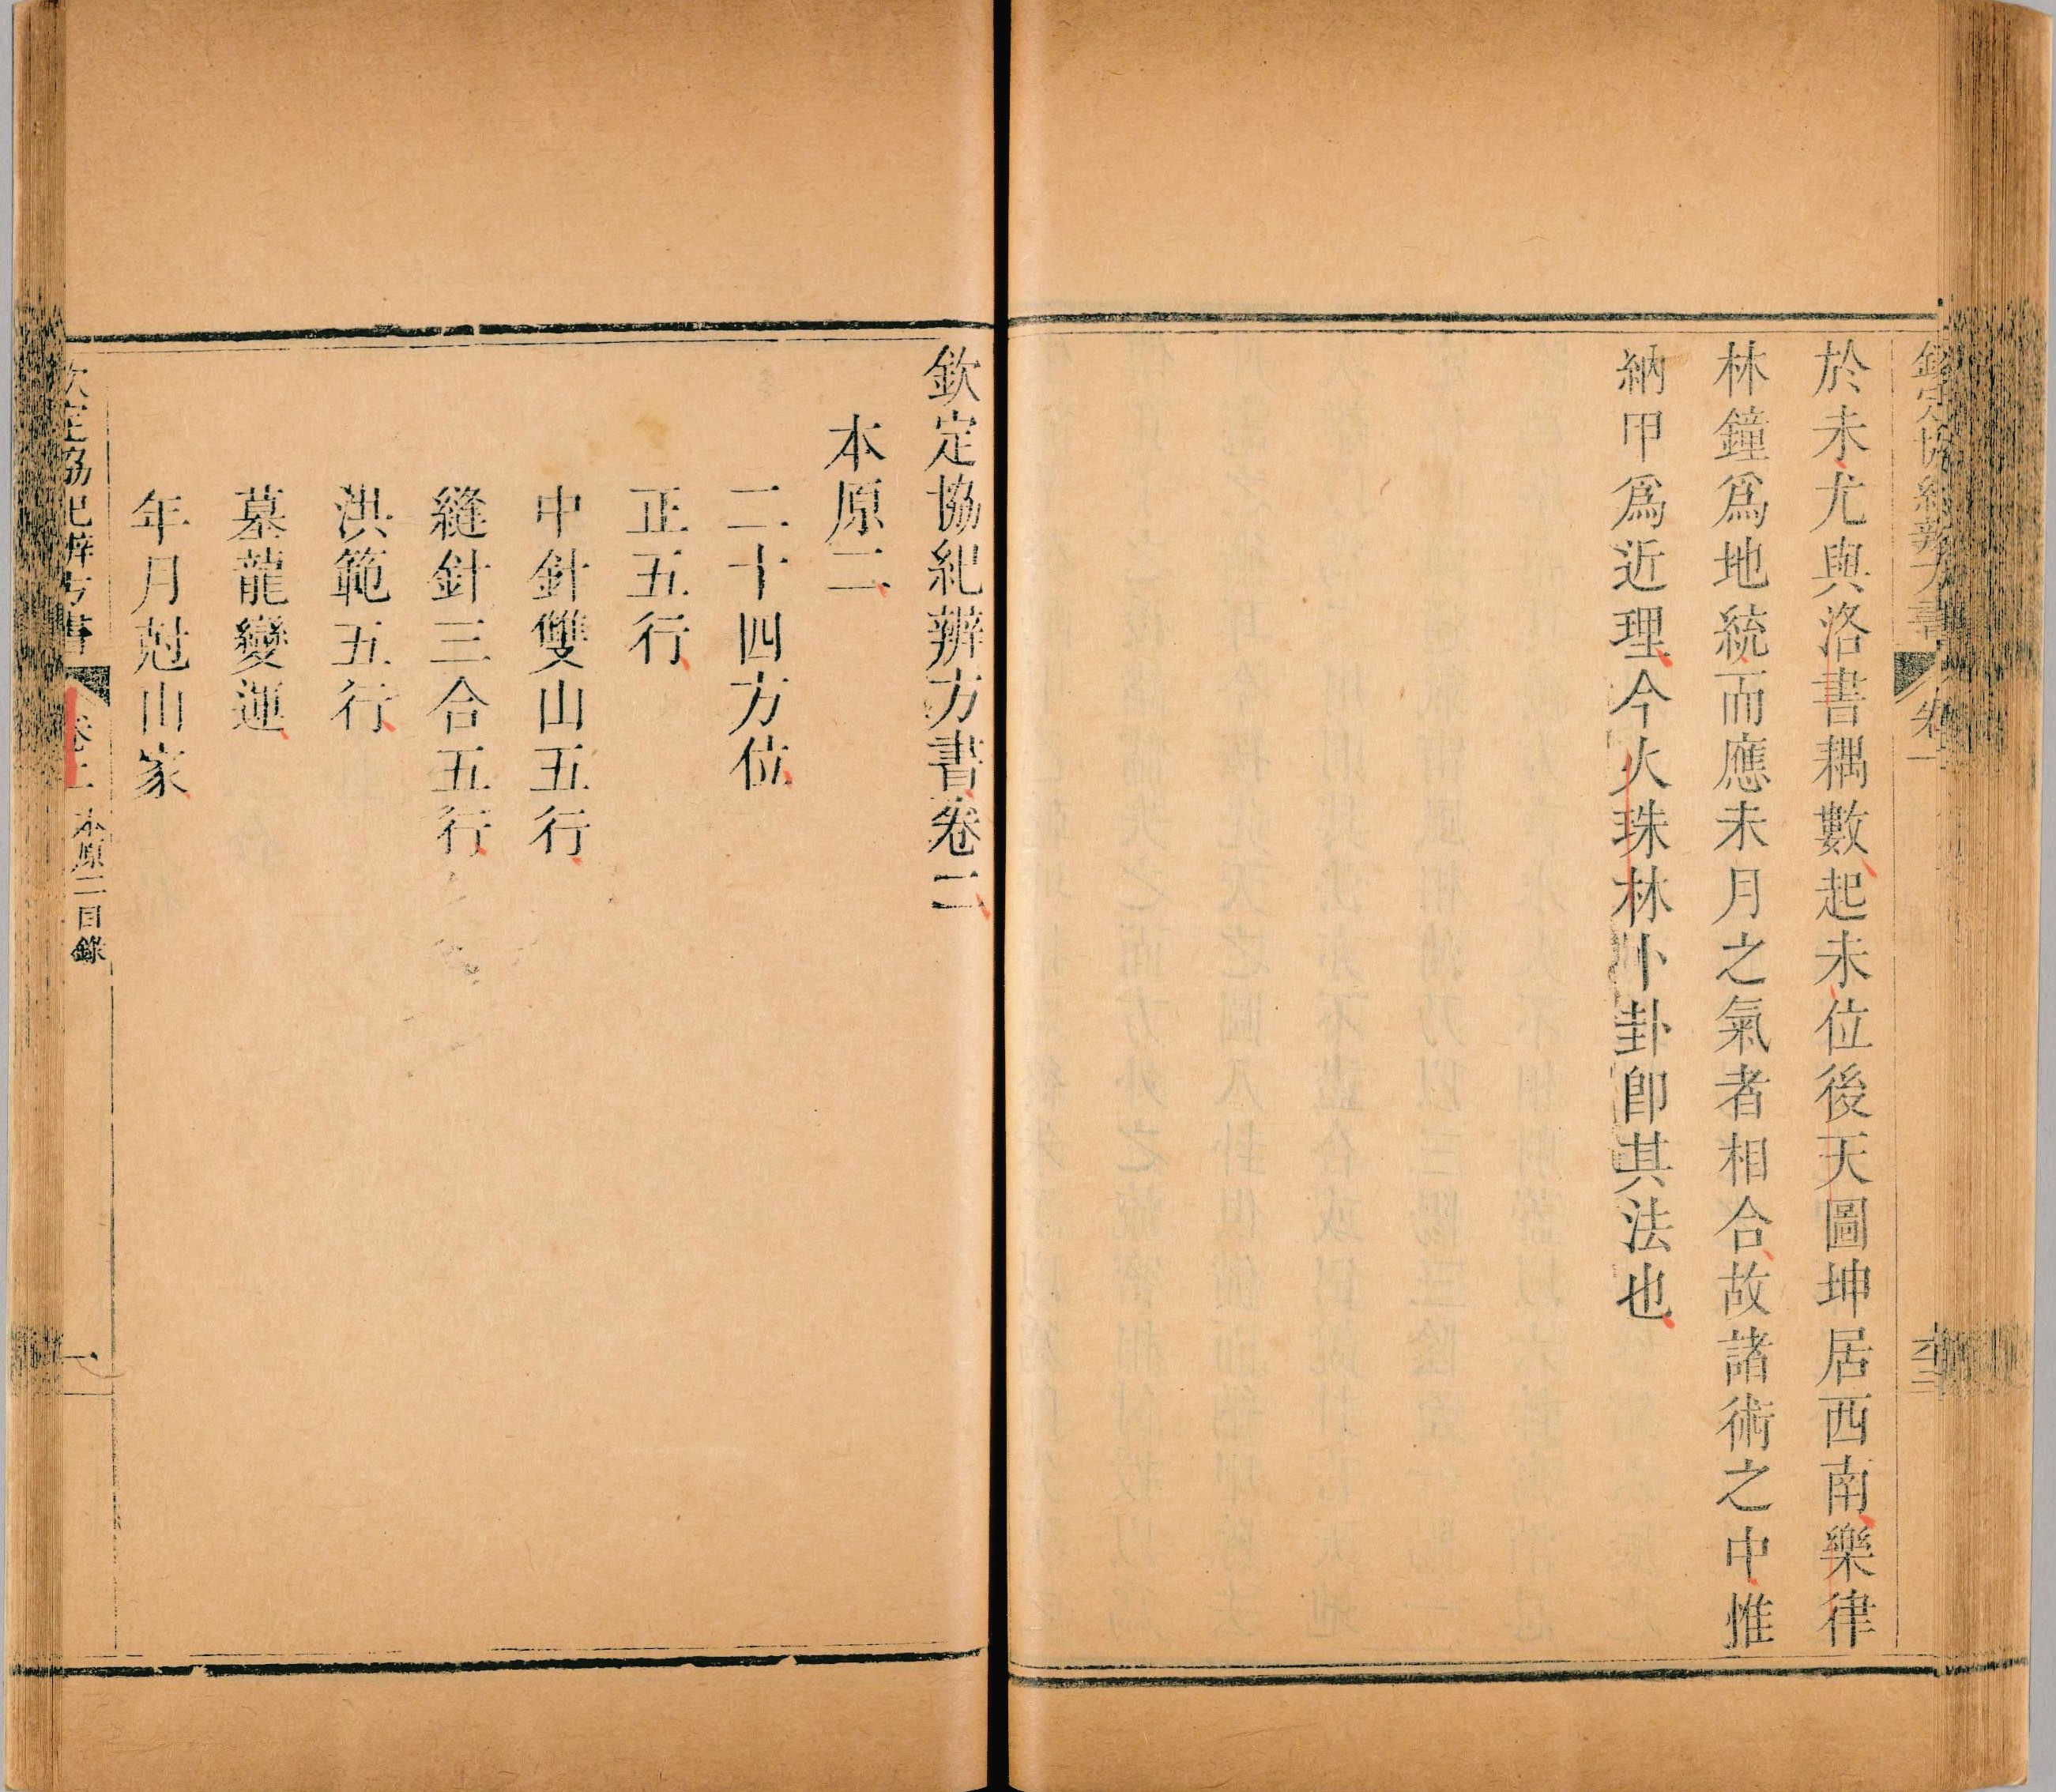 欽定協紀辨方書 卷一
於未尤與洛書耦數起未位後天圖坤居西南樂律
林鐘爲地統而應未月之氣者相合故諸術之中惟
納甲爲近理今火珠林卜卦卽其法也
欽定協紀辨方書卷二
本原二
二十四方位
正五行
中針雙山五行
縫針三合五行
洪範五行
墓龍變運
年月尅山家
欽定協紀辨方書 卷二 本原二目錄 一